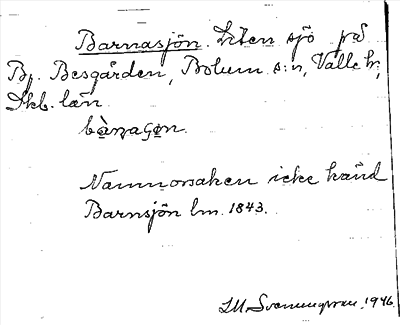 Barnasjön. Liten sjö på
By. Besgården, Bolum s:n, Valle hd,
Skb. län.
Namnorsaken icke känd
Barnsjön lm. 1843.
1946.